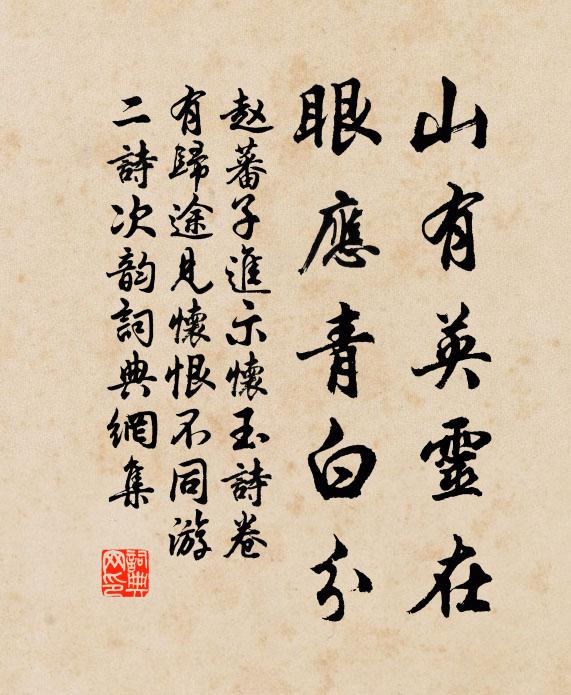 山有英靈在
眼應青白分
赵蕃子進示懷玉詩卷
有歸途見懷恨不同游
二詩次韵詞典網集
詞典网印